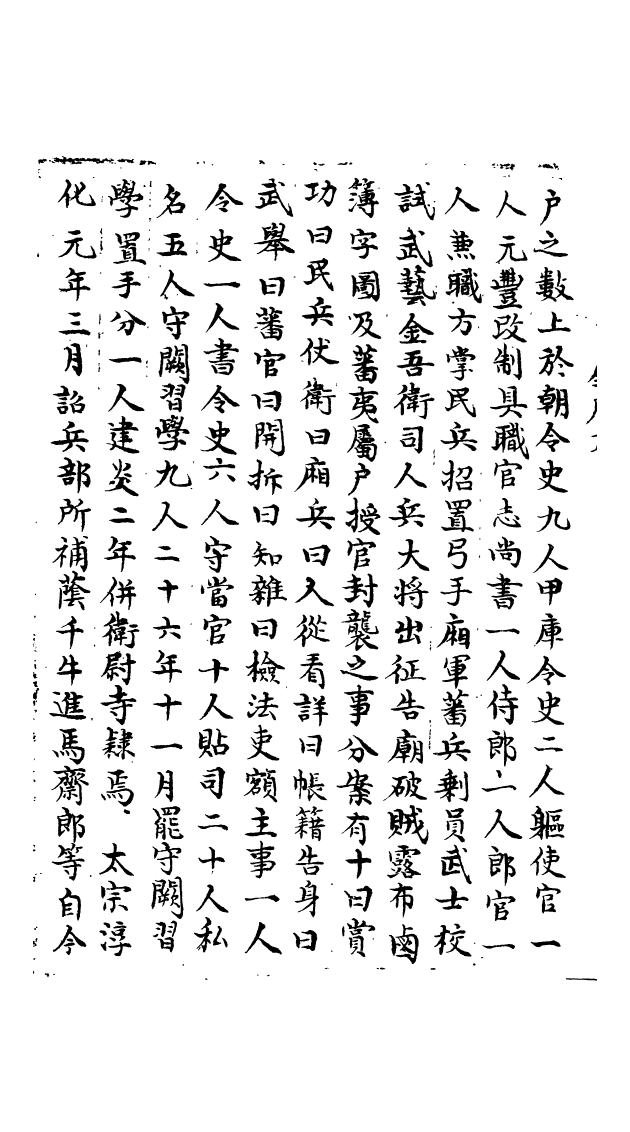 户之數上於朝令史九人甲庫令史二人驅使官一
人元豐改制具職官志尚書一人侍郎一人郎官一
人兼職方掌民兵招置弓手廂軍蕃兵剰員武士校
試武藝金吾衛司人兵大將出征告廟破賊露布鹵
簿字圖及蕃夷屬户授官封襲之事分案有十曰賞
功曰民兵伏衛曰廂兵曰人從看詳曰帳籍告身曰
武舉曰蕃官曰開拆曰知雜曰檢法吏額主事一人
令史一人書令史六人守當官十人貼司二十人私
名五人守闕習學九人二十六年十一月罷守闕習
學置手分一人建炎二年併衛尉寺隸焉、太宗淳
化元年三月詔兵部所補蔭千牛進馬齋郎等自今